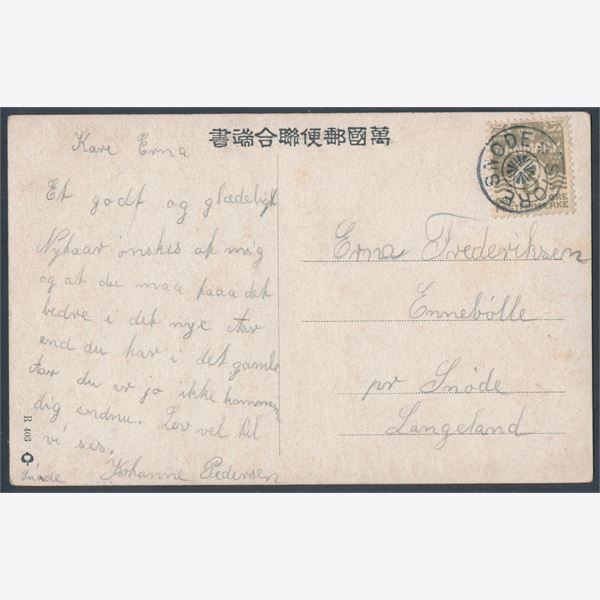 書端合聯便郵國萬
Kære Erna
Et godt og glædeligt
Nytaar ønskes af mig
og at du maa faa det
bedre i det nye Aar
end du har i det gamle
Aar du er jo ikke kommen
dig endnu. Lev vel til
vi ses.
Johanne Pedersen
Snøde
R 403
SNØDE
ØRE
Erna Frederiksen
Ennebølle
pr Snøde
Langeland